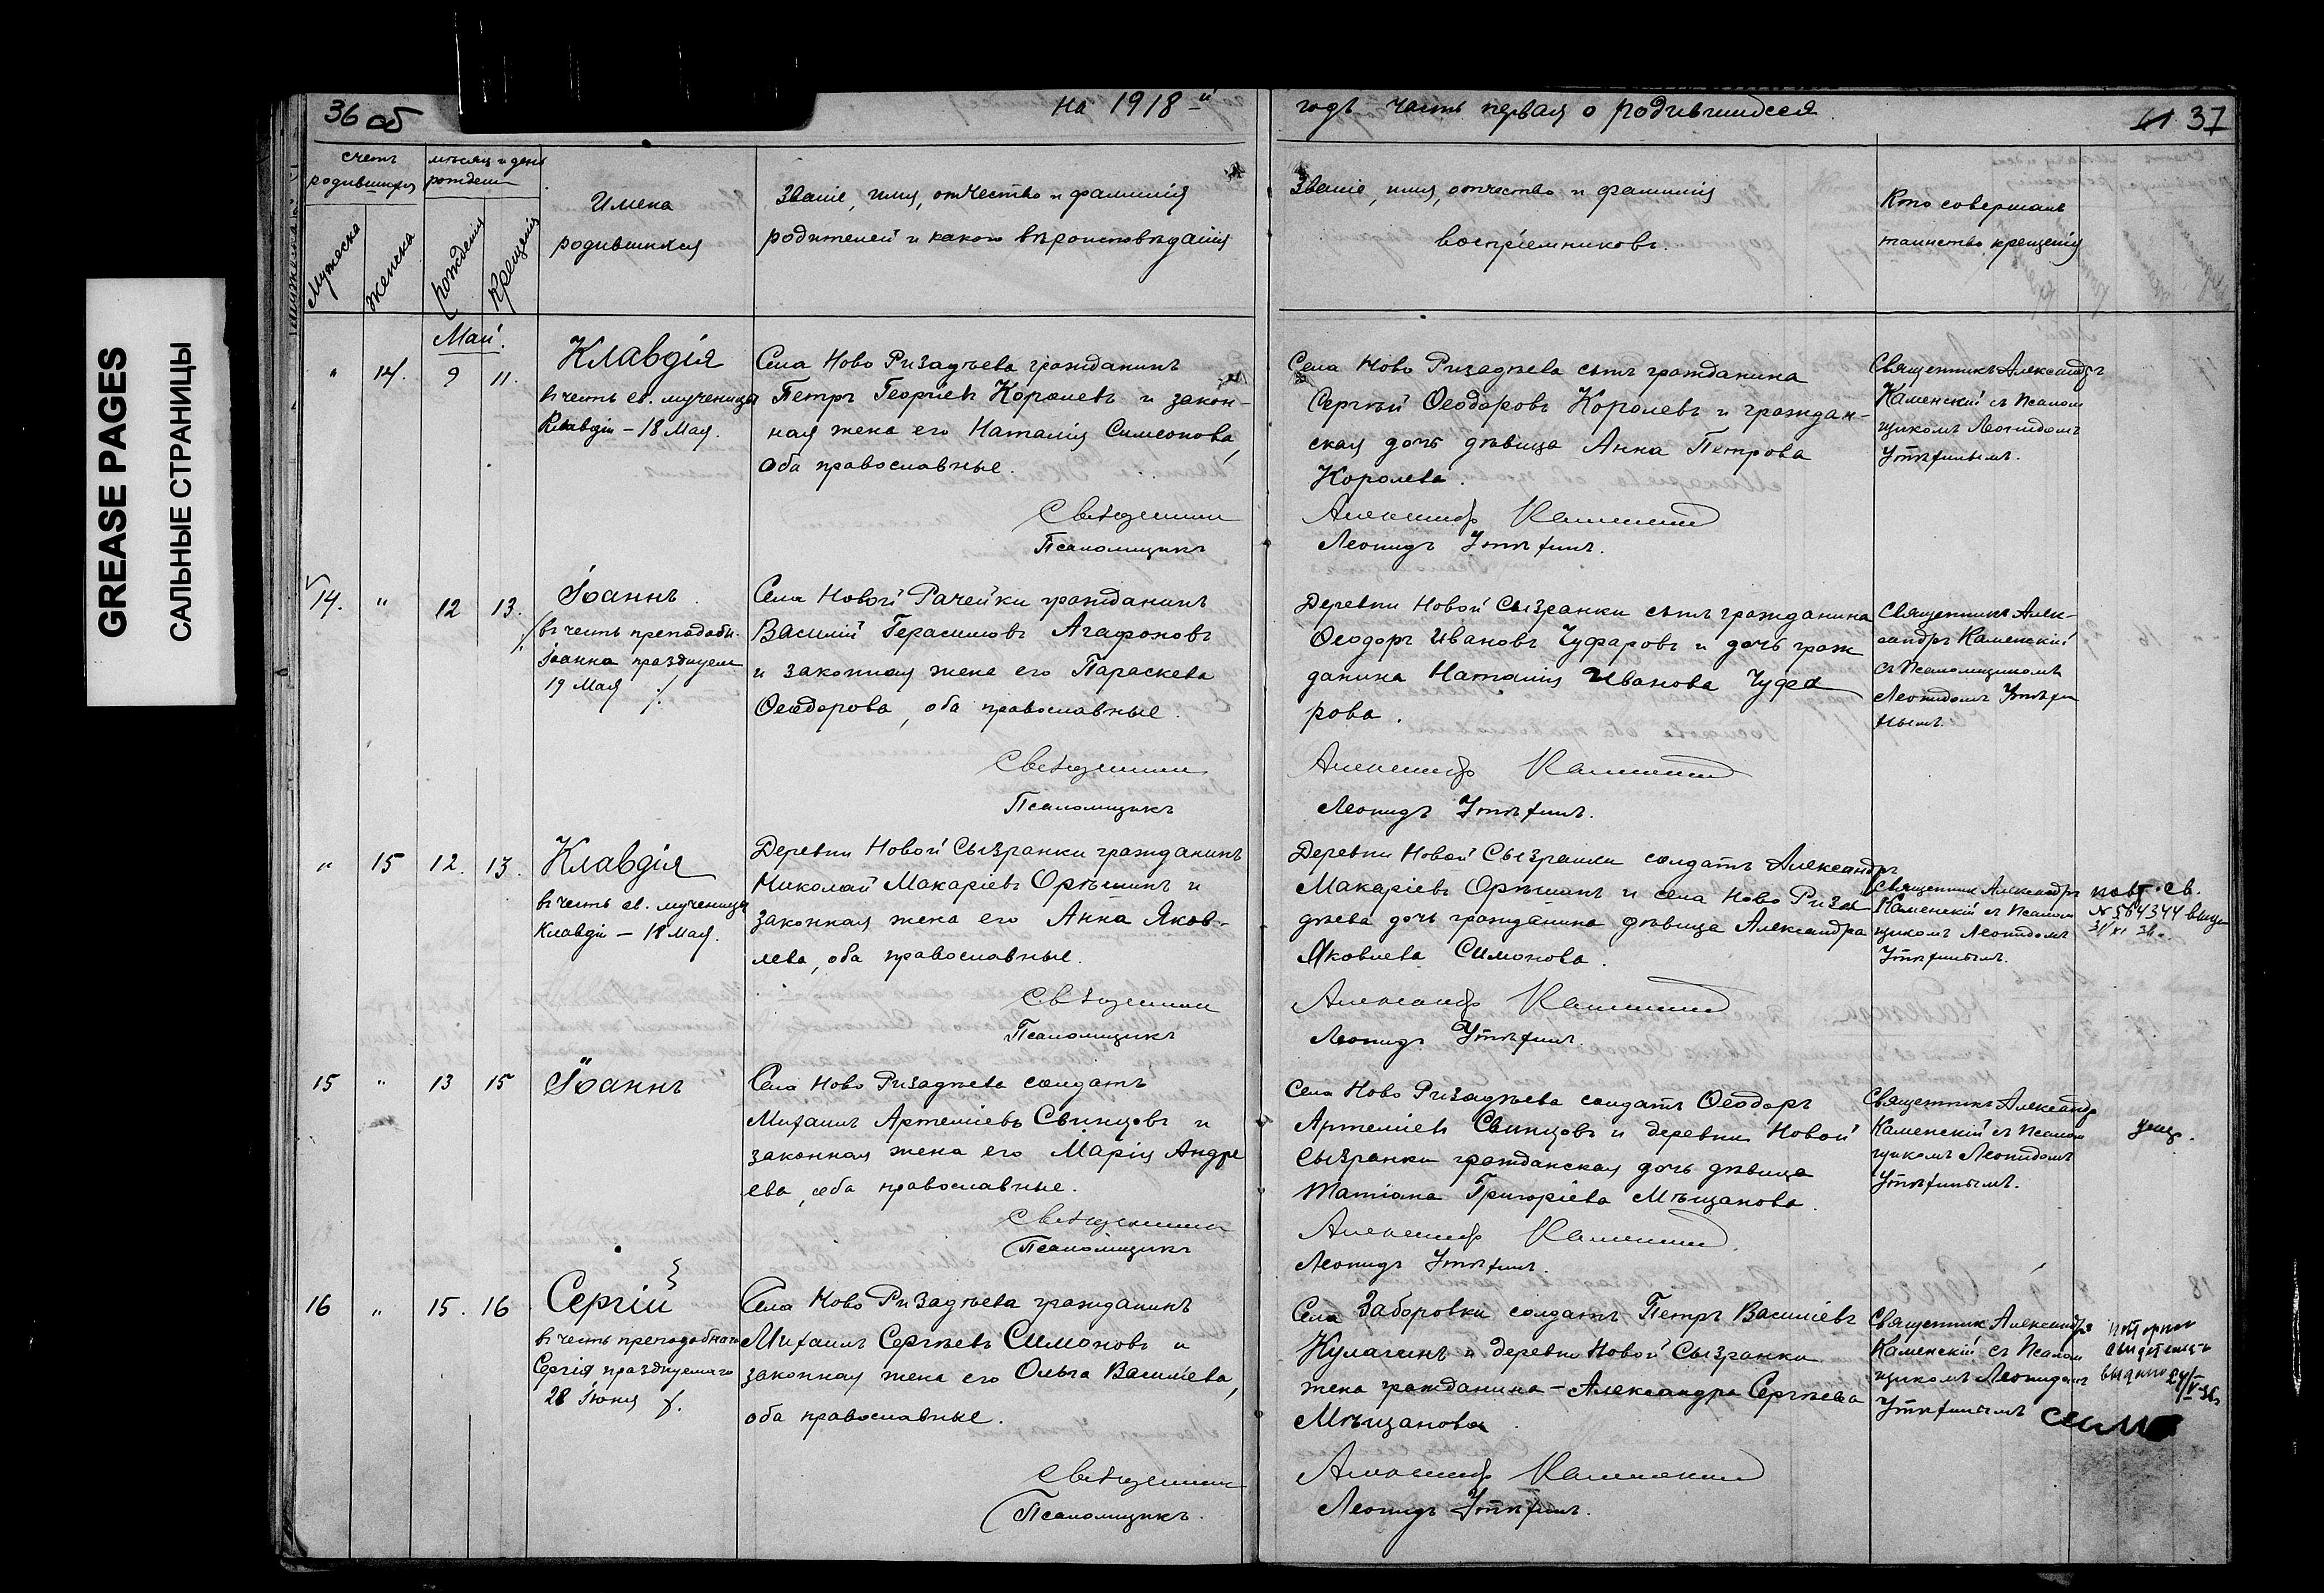 GREASE PAGES
САЛЬНЫЕ СТРАНИЦЫ
36 об
на 1918-й
годъ часть первая о родившихся
37
счетъ родившихся
мѣсяц и день рожденія
Мужеска
Женска
рожденія
Крещенія
Имена
родившихся
Званіе, имя, отчество и фамилія
родителей и какого вѣроисповѣданія
Званіе, имя, отчество и фамилія
воспріемниковъ.
Кто совершалъ
таинство крещенія
Май.
" 14. 9 11.
Клавдія
въ честь св. мученицы
Клавдіи – 18 Мая.
Села Ново Ризадѣева гражданинъ
Петръ Георгіевъ Королевъ и закон-
ная жена его Наталія Симеонова,
Оба православные.
Священникъ
Псаломщикъ
Села Ново Ризадѣева сынъ гражданина
Сергѣй Ѳеодоровъ Королевъ и граждан-
ская дочь дѣвица Анна Петрова
Королева.
Александръ Каменскій
Леонидъ
Священникъ Александръ
Каменскій съ Псалом
щикомъ Леонидомъ
14. " 12 13.
Іоаннъ.
въ честь преподобн.
Іоанна празднуем
19 Мая
Села Новой Рачейки гражданинъ
Василій Герасимовъ Агафоновъ
и законная жена его Параскева
Ѳеодорова, оба православные.
Священникъ
Псаломщикъ
Деревни Новой Сызранки сынъ гражданина
Ѳеодоръ Ивановъ Чуфаровъ и дочь граж
данина Наталія Иванова Чуфа
рова.
Александръ Каменскій
Леонидъ
Священникъ Алек-
сандръ Каменскій
съ Псаломщикомъ
Леонидомъ
" 15 12. 13.
Клавдія
въ честь св. мученицы
Клавдіи – 18 Мая.
Деревни Новой Сызранки гражданинъ
Николай Макаріевъ Орѣшинъ и
законная жена его Анна Яков-
лева, оба православные.
Священникъ
Псаломщикъ
Деревни Новой Сызранки солдатъ Александръ
Макаріевъ Орѣшинъ и села Ново Риза
дѣева дочь гражданина дѣвица Александра
Яковлева Симонова.
Александръ Каменскій
Леонидъ
Священник Александръ
Каменскій съ Псалом
щикомъ Леонидомъ
повт. св.
15 " 13 15
Іоаннъ
Села Ново Ризадѣева солдатъ
Михаилъ Артеміевъ Свинцовъ и
законная жена его Марія Андре
ева, оба православные.
Священникъ
Псаломщикъ
Села Ново Ризадѣева солдатъ Ѳеодоръ
Артеміевъ Свинцовъ и деревни Новой
Сызранки гражданская дочь дѣвица
Татіана Григоріева Мѣщанова.
Александръ Каменскій
Леонидъ
Священникъ Александр
Каменскій съ Псалом
щикомъ Леонидомъ
16 " 15. 16
Сергій
въ честь преподобнаго
Сергія празднуемаго
28 Іюня
Села Ново Ризадѣева гражданинъ
Михаилъ Сергѣевъ Симоновъ и
законная жена его Ольга Василіева,
оба православные.
Священникъ
Псаломщикъ.
Села Заборовки солдатъ Петръ Василіевъ
Кулагинъ и деревни Новой Сызранки
жена гражданина – Александра Сергѣева
Мѣщанова.
Александръ Каменскій
Леонидъ
Священник Александръ
Каменскій съ Псалом
щикомъ Леонидомъ